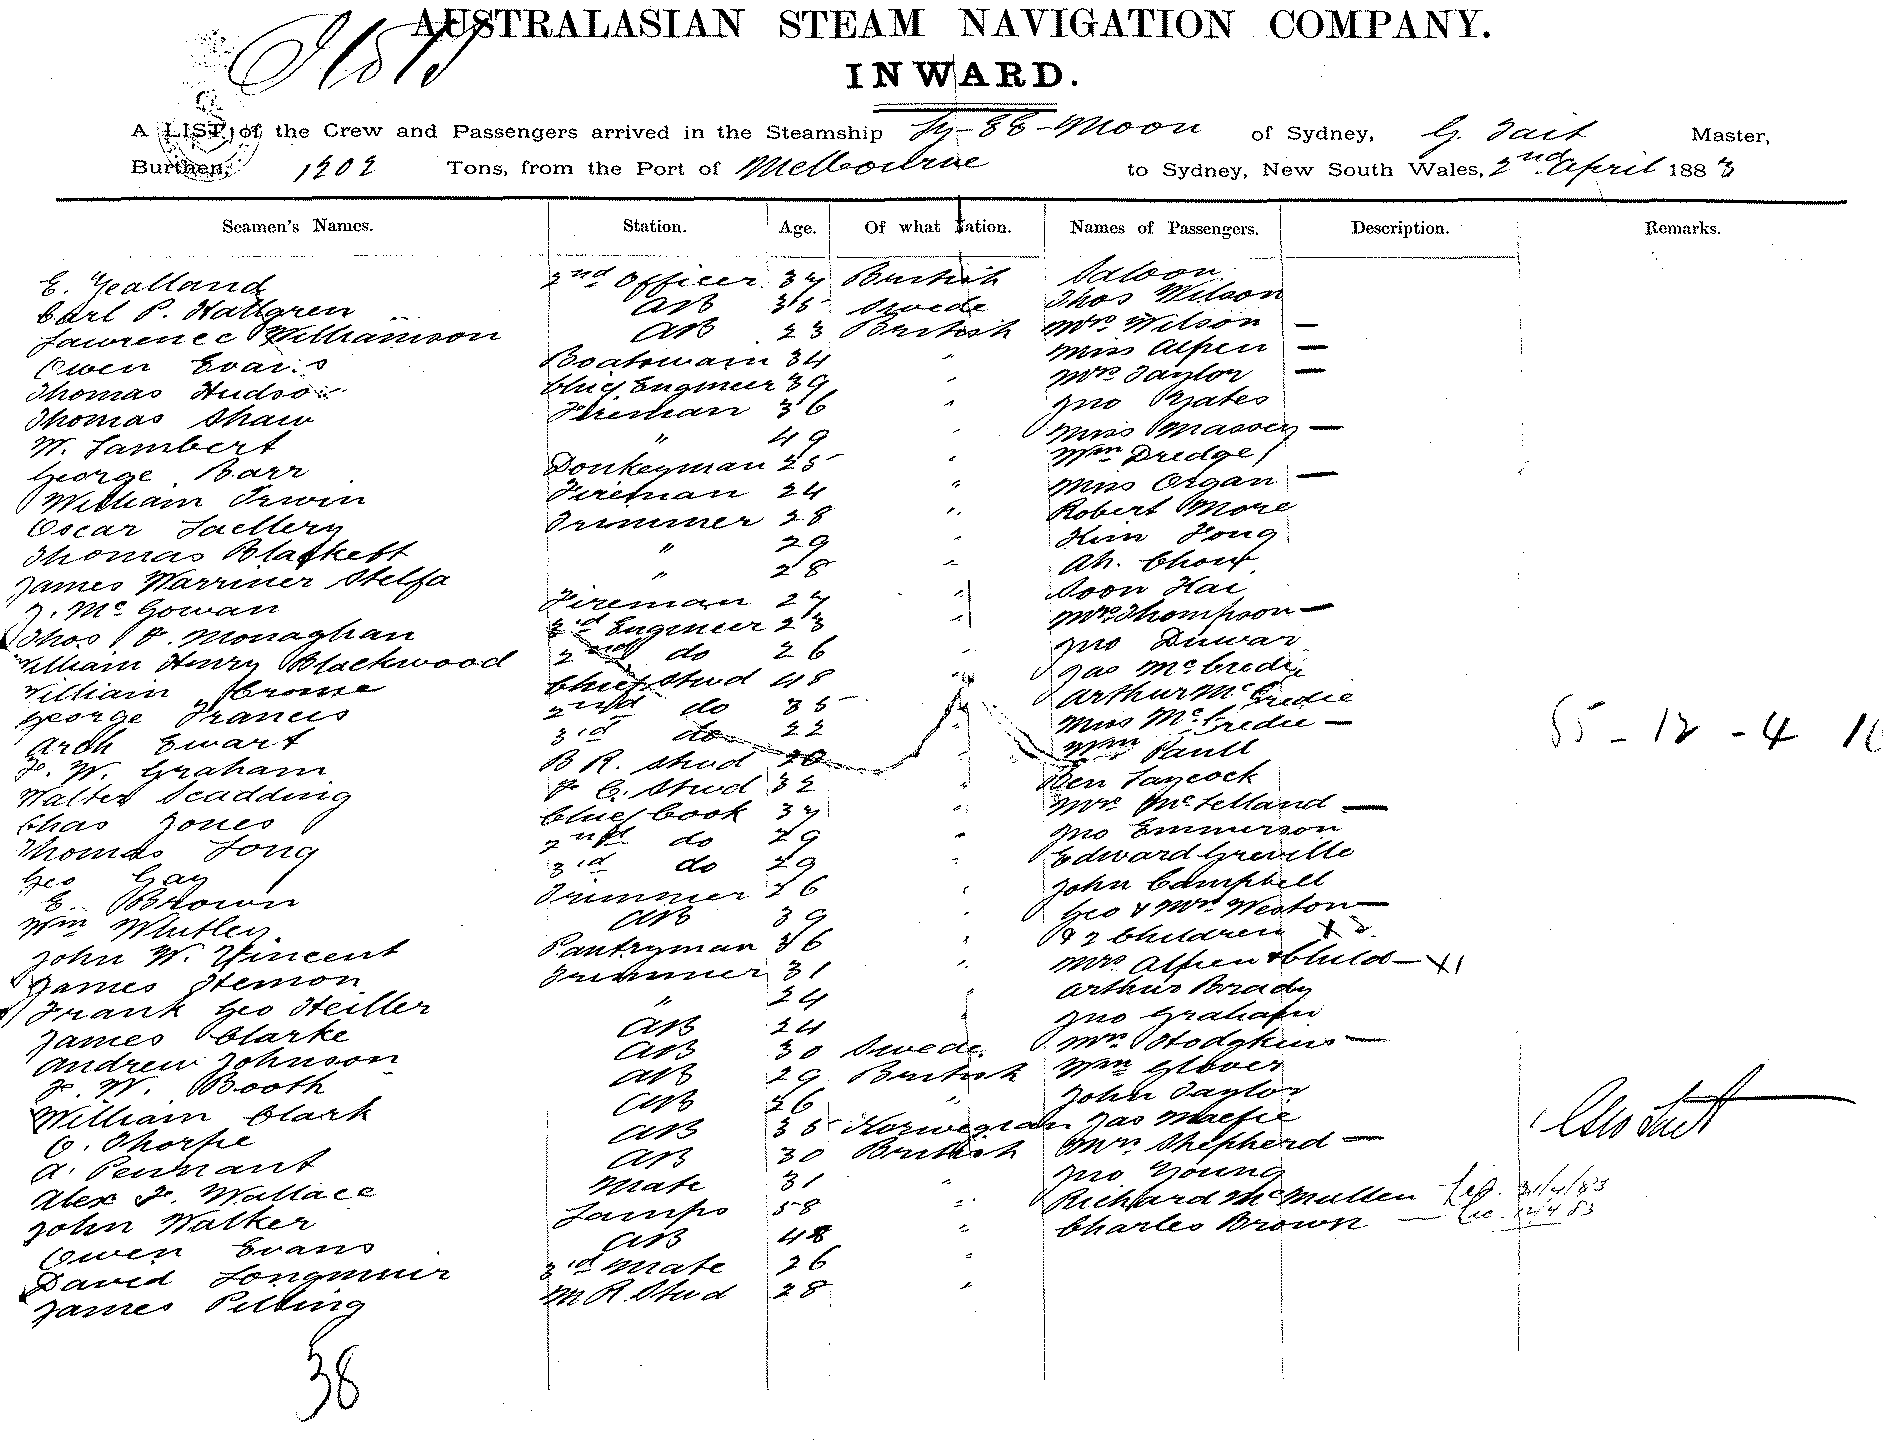 AUSTRALASIAN STEAM NAVIGATION COMPANY.
INWARD.
A LIST of the Crew and Passengers arrived in the Steamship Ly-EE-Moon of Sydney, G. Tait Master,
Burthen, 1202 Tons, from the Port of Melbourne to Sydney, New South Wales, 2nd April 1883
Seamen's Names. Station. Age. Of what Nation. Names of Passengers. Description. Remarks.
E. Yealland 2nd Officer 37 British Saloon
Carl P. Hallgren AB 35 Swede Thos Wilson
Lawrence Williamson AB 23 British Mrs Wilson —
Owen Evans Boatswain 34 " Miss Alpen —
Thomas Hudson Chief Engineer 39 " Mrs Taylor —
Thomas Shaw Fireman 36 " Jno Yates
W. Lambert " 49 " Miss Massey —
George Barr Donkeyman 25 " Wm Dredge
William Irwin Fireman 24 " Miss Organ —
Oscar Trimmer 28 " Robert More
Thomas Blackett " 29 " Kim Fong
James Warriner Stelfa " 28 " Ah. Chow
J. McGowan Fireman 27 " Soon Hai
Thos F. Monaghan 3rd Engineer 23 " Mrs Thompson —
William Henry Blackwood 2nd do 26 " Jno Duwar
William Crome Chief Stud 48 " Jas McCredie
George Francis 2nd do 35 " Arthur McCredie
Arch Ewart 3rd do 22 " Miss McCredie —
F. W. Graham B R. Stud 20 " Wm Paull
Walter Scadding F. C. Stud 32 " Ben Laycock
Chas Jones Chief Cook 37 " Mrs McLelland —
Thomas Long 2nd do 29 " Jno Emmerson
Geo Gay 3rd do 29 " Edward Greville
E. Brown Trimmer 26 " John Campbell
Wm Whitley AB 39 " Geo & Mrs Weston —
John W. Vincent Pantryman 36 " & 2 Children X 2
James Hemon Trimmer 31 " Mrs Alpen & Child — X1
Frank Geo Heiller " 24 Arthur Brady
James Clarke AB 24 Jno Graham
Andrew Johnson AB 30 Swede Mrs Hodgkins —
F. W. Booth AB 29 British Wm Glover
William Clark AB 26 " John Taylor
O. Thorpe AB 35 Norwegian Jas Maefie
A. Pennant AB 30 British Mrs Shepherd —
Alex F. Wallace Mate 31 " Jno Young
John Walker Lamps 58 " Richard McMullen
Owen Evans AB 48 " Charles Brown
David Longmuir 3rd Mate 26 "
James Pilling M.R. Stud 28 "
55 - 12 - 4
Geo Tait
38